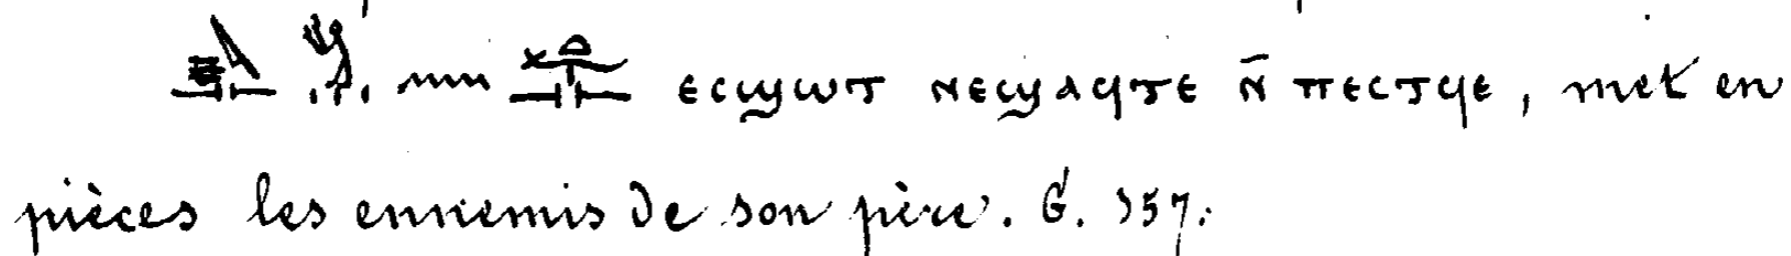 ⲉⲥϣⲱⲧ ⲛⲉϣⲁϥⲧⲉ ⲛ̄ ⲡⲉⲥⲧϥⲉ, met en
pièces les ennemis de son père. G. 357.